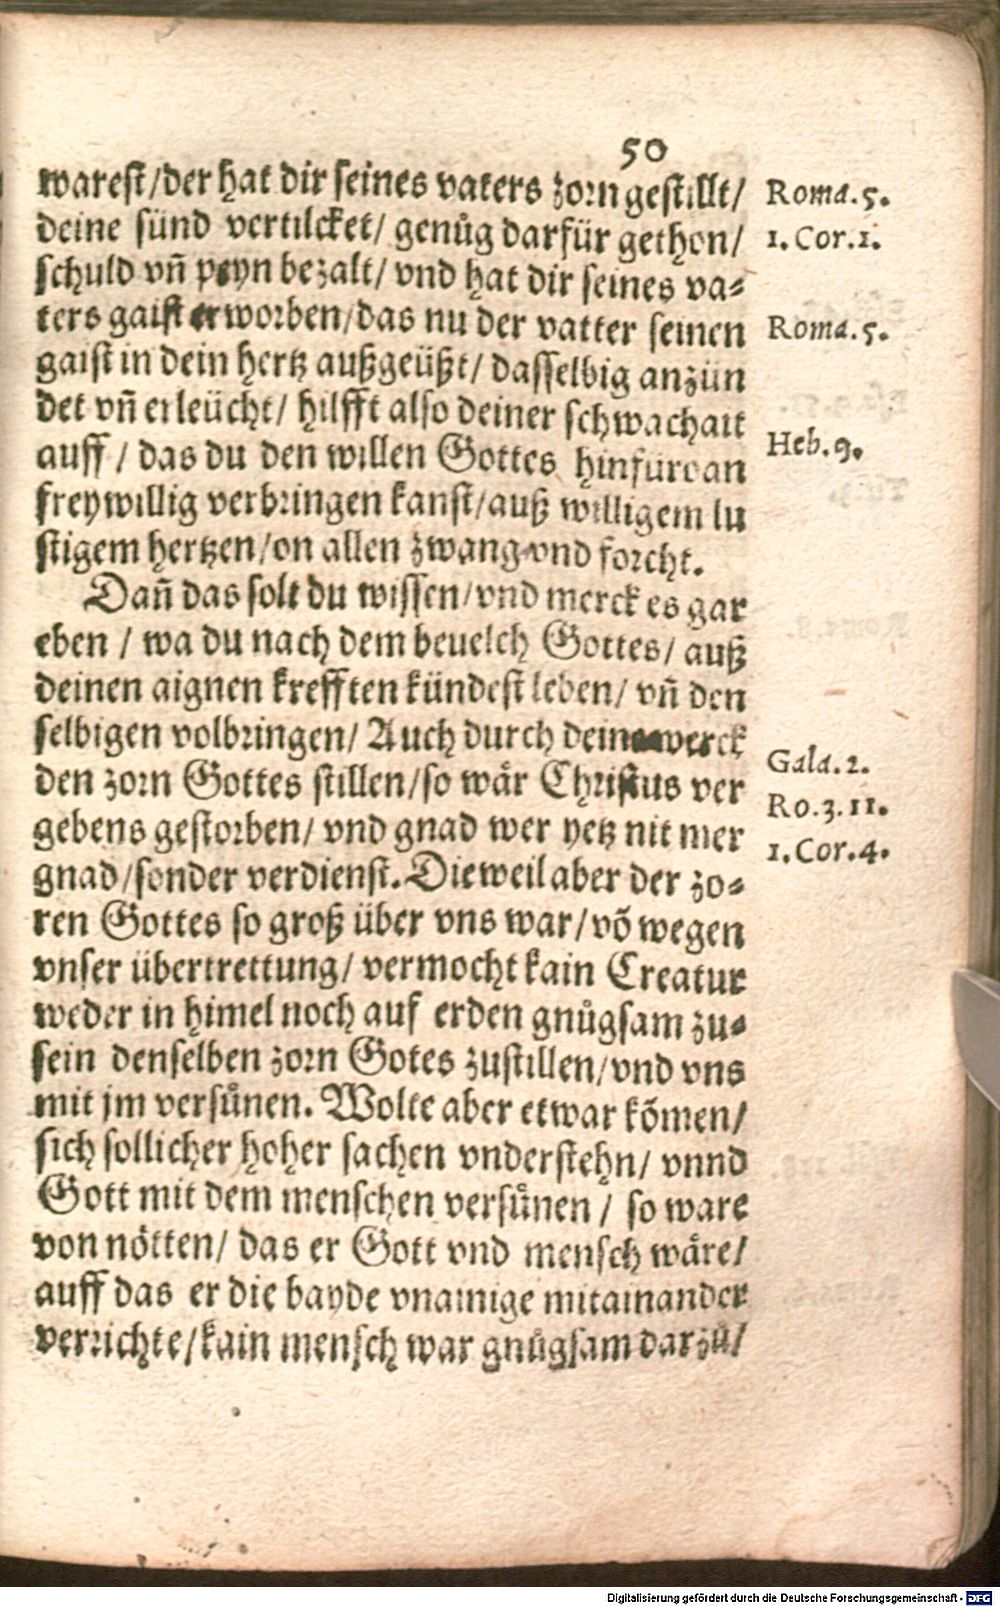 50
warest/der hat dir seines vaters zorn gestillt/
deine sünd vertilcket/ genůg darfür gethon/
schuld vñ peyn bezalt/ vnd hat dir seines va⸗
ters gaist erworben/das nu der vatter seinen
gaist in dein hertz außgeüßt/ dasselbig anzün
det vñ erleücht/ hilfft also deiner schwachait
auff / das du den willen Gottes hinfuroan
freywillig verbringen kanst/auß willigem lu
stigem hertzen/on allen zwang vnd forcht.
Dañ das solt du wissen/vnd merck es gar
eben / wa du nach dem beuelch Gottes/ auß
deinen aignen krefften kündest leben/ vñ den
selbigen volbringen/ Auch durch deine werck
den zorn Gottes stillen/so wär Christus ver
gebens gestorben/ vnd gnad wer yetz nit mer
gnad/sonder verdienst. Dieweil aber der zo⸗
ren Gottes so groß über vns war/võ wegen
vnser übertrettung/ vermocht kain Creatur
weder in himel noch auf erden gnůgsam zu⸗
sein denselben zorn Gotes zustillen/vnd vns
mit jm versůnen. Wolte aber etwar kõmen/
sich sollicher hoher sachen vnderstehn/ vnnd
Gott mit dem menschen versůnen / so ware
von nötten/ das er Gott vnd mensch wäre/
auff das er die bayde vnainige mitainander
verrichte/kain mensch war gnůgsam darzů/
Roma.5.
1.Cor.1.
Roma.5.
Heb.9.
Gala.2.
Ro.3.11.
1.Cor.4.
Digitalisierung gefördert durch die Deutsche Forschungsgemeinschaft - DFG